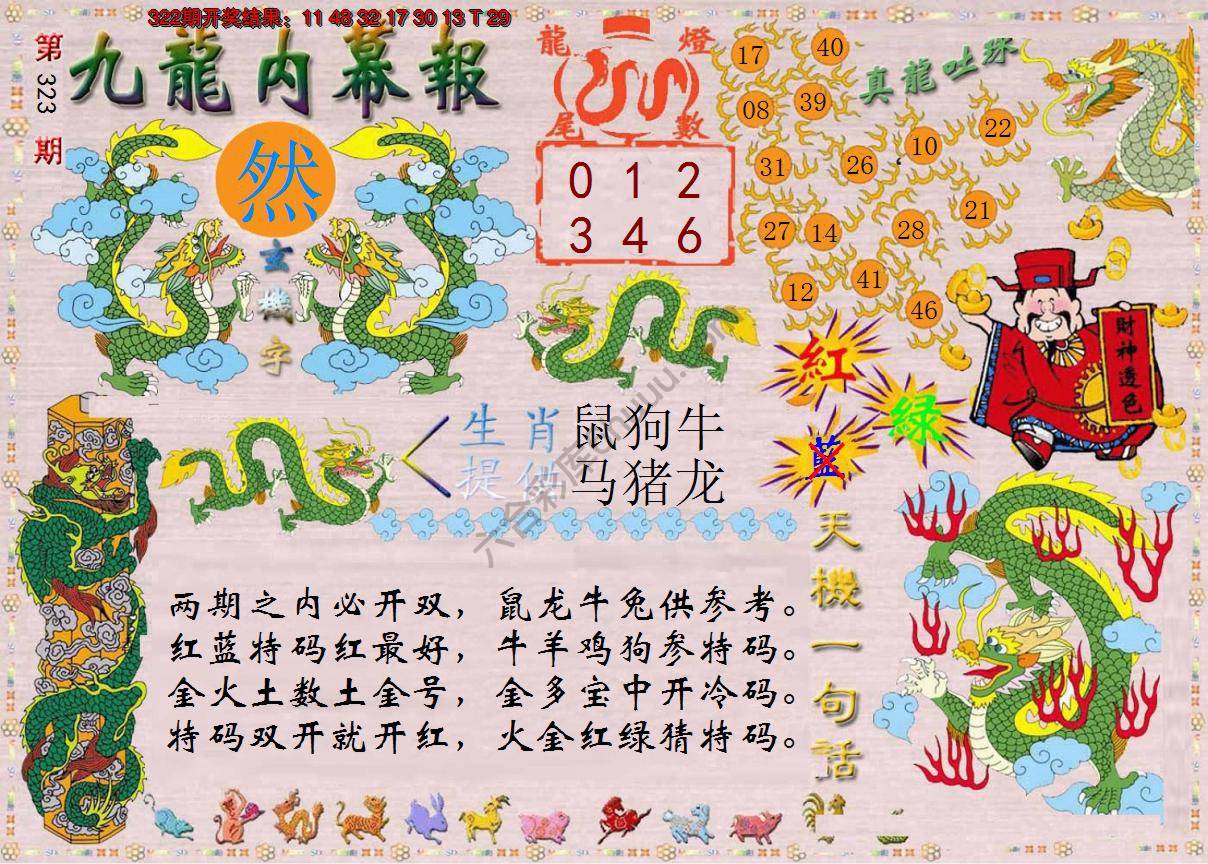 322期开奖结果：11 48 32 17 30 13 T 29
第323期
九龍内幕報
然
玄機字
龍燈
尾數
0 1 2
3 4 6
真龍吐珠
17 40
08 39
31 26 10 22
27 14 28 21
12 41 46
財神透色
紅
绿
藍
生肖 鼠狗牛
提供 马猪龙
天機一句話
两期之内必开双，鼠龙牛兔供参考。
红蓝特码红最好，牛羊鸡狗参特码。
金火土数土金号，金多宝中开冷码。
特码双开就开红，火金红绿猜特码。